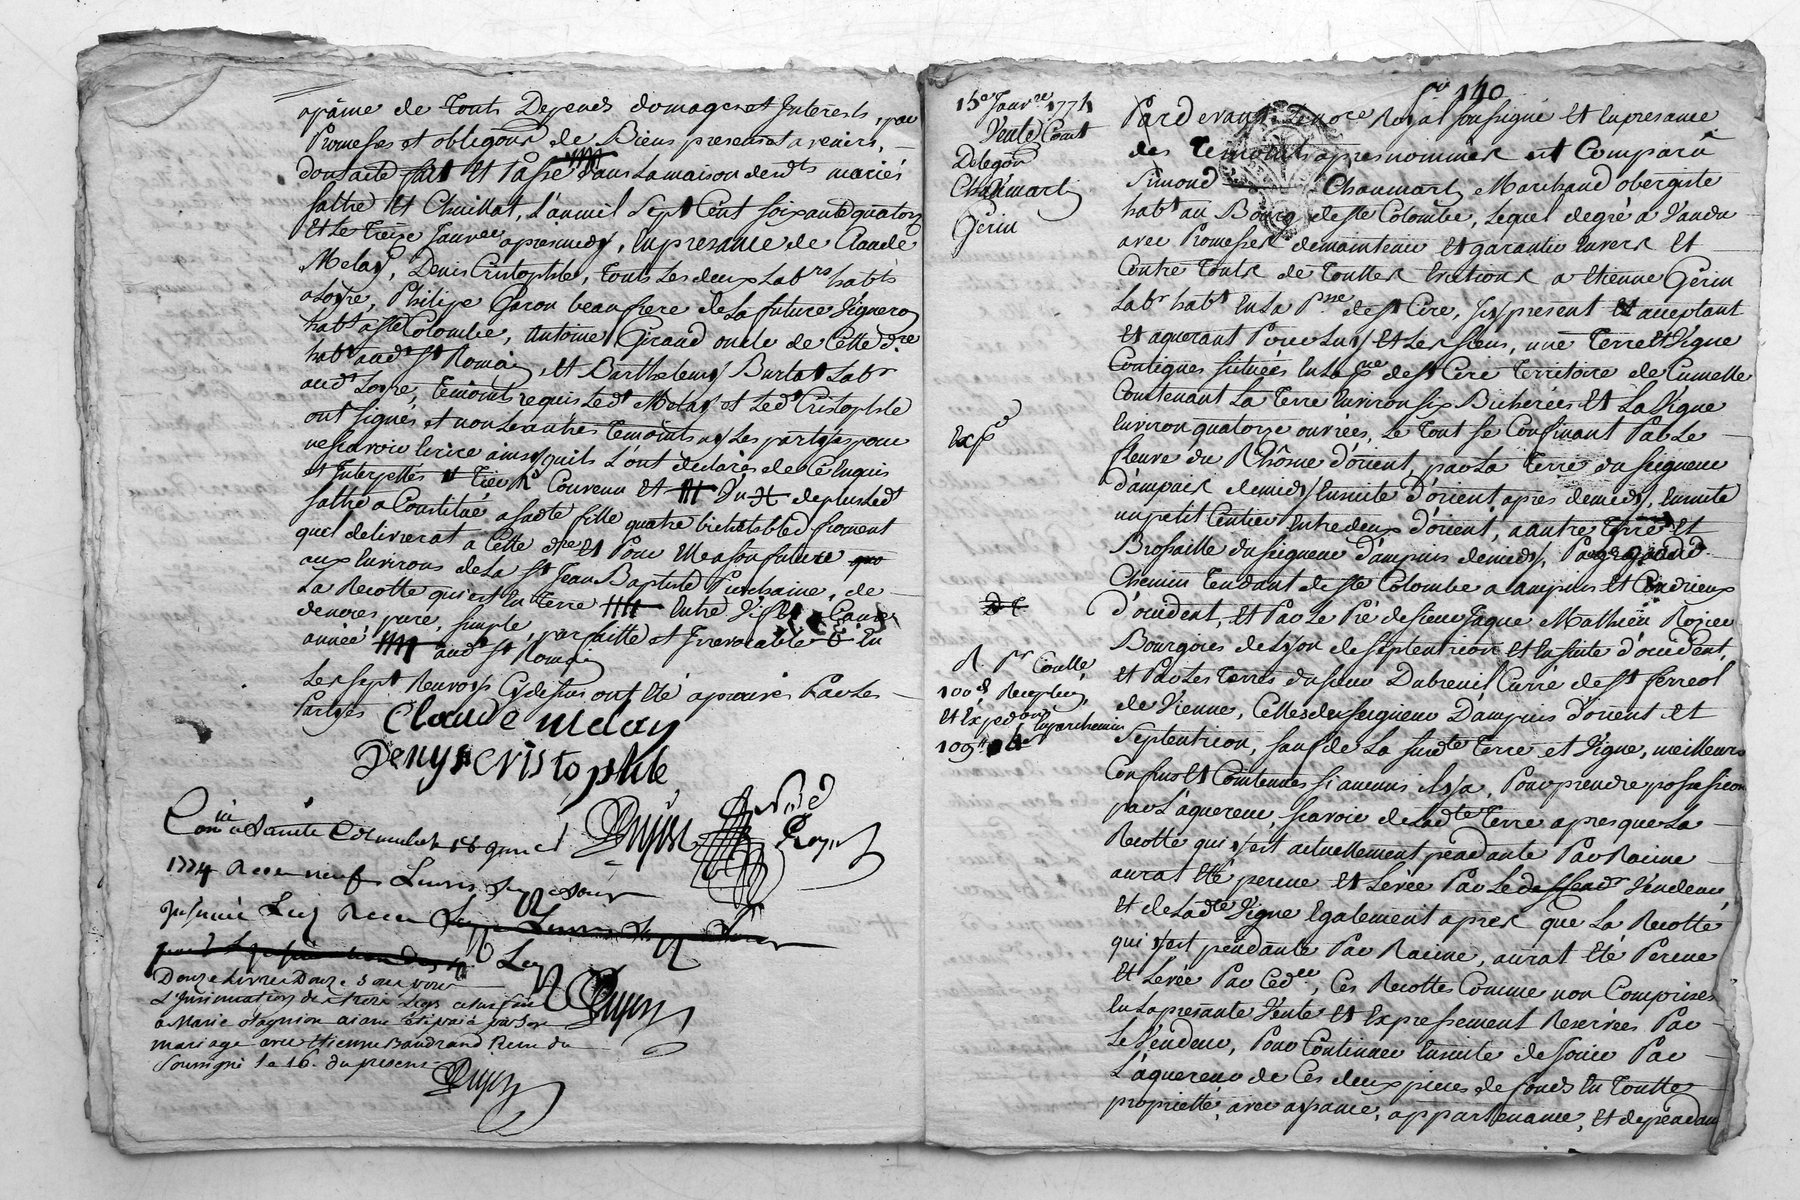 apâine de touts Depends domages et Interests, par
Promesses et obligaons de Biens presents et avenirs,
dont acte fait et Passé dans la maison desdts mariés
sathre et Chuillat, L'an mil sept Cent soixante quatorze
et Le treize Janvier apres midy, En presance de Claude
Melay, Denis Cristophle, touts Les deux Labrs habts
a Loire, Philipe Garon beaufrere de La future Vigneron
habt à ste Colombe, Antoine Giraud oncle de Cette dre
habt audt st Romain, et Barthelemy Burlat Labr
audt Loire, temoints requis Ledt Melay et Ledt Cristophle
ont signés et non Les autres temoints ny Les parties pour
ne scavoir Ecrire ainsy quils L'ont declarés de Ce Enquis
et Interpellés Convenu et deplus Ledt
sathre a Constitué a sadte fille quatre bichets bled froment
quel delivrerat a Cette dre et Pour Elle a son futur
aux Environs de La st Jean Baptiste Prochaine, de
La Recolte qui est En terre Entre Vifs
denrés pure, simple, parfaitte et Irrevocable En
année audt st Romain
Les sept Renvoys Cy dessus ont été aprouvés Par Les
Parties
Claude melay
Denys Cristophle
Conlé a Sainte Colombe le 18 janvier
1774 Receu neuf Livres
Guyot
Royer
Insinué Led Receu
Douze Livres Douze Sous pour
L'Insinuation des trois Legs
a Marie
mariage avec Etienne Baudrand
Soussigné le 16. du present
Guyot
Guyot
fo 140
15e Janvier 1774
Vente Cont
Delegaon
Chaumartin
Gerin
Expé
R. Pr Conlle
100 # Reception
et Expedon En parchemin
109 #
Pardevant Le nore Royal soussigné et En presance
des temoints apres nommés est Comparû
Simond Chaumartin Marchand obergiste
habt au Bourg de ste Colombe, Lequel de gré a Vandu
avec Promesses de maintenir et garantir Envers et
Contre touts de touttes Evictions a Etienne Gerin
Labr habt En La Psse de st Cire, Icy present et acceptant
et aquerant Pour Luy et Les siens, une terre et Vigne
Contigues situées En La psse de st Cire territoire de Cumelle
Contenant La terre Environ six Bicherées et La Vigne
Environ quatorze ouvrées, Le tout se Confinant Par Le
fleuve du Rhône d'orient, par La terre du seigneur
d'ampuis de midy Ensuite d'orient, apres de midy, Ensuite
un petit Centier Entre deux d'orient, autre terre et
Brossaille du seigneur d'ampuis de midy, Par Le grand
Chemin tendant de ste Colombe a ampuis et Condrieux
d'occident, et Par Le Pré de sieur Jaque Mathieu Rozier
Bourgois de Lyon de septentrion et Ensuite d'occident,
et Par Les terres du sieur Dubreuil Curré de st ferreol
de Vienne, Celles du seigneur Dampuis d'orient et
Septentrion, sauf de La susdte terre et Vigne, meilleurs
Confins et Contenues si aucuns Il y a, Pour prendre possession
par L'aquereur, scavoir de Ladte terre apres que La
Recolte qui y est actuellement pendante Par Racine
aurat été perçue et Levée Par Le Vendeur,
et de Ladte Vigne Egalement apres que La Recolte
qui y est pendante Par Racine, aurat été Perçue
et Levée Par Cedr, Ces Recoltes Comme non Comprises
En La presante Vente et Expressement Reservées Par
Le Vendeur, Pour Continuer Ensuite de Jouir Par
L'aquereur de Ces deux pieces de fonds En toutte
proprietté, avec aisance, appartenance, et dependan